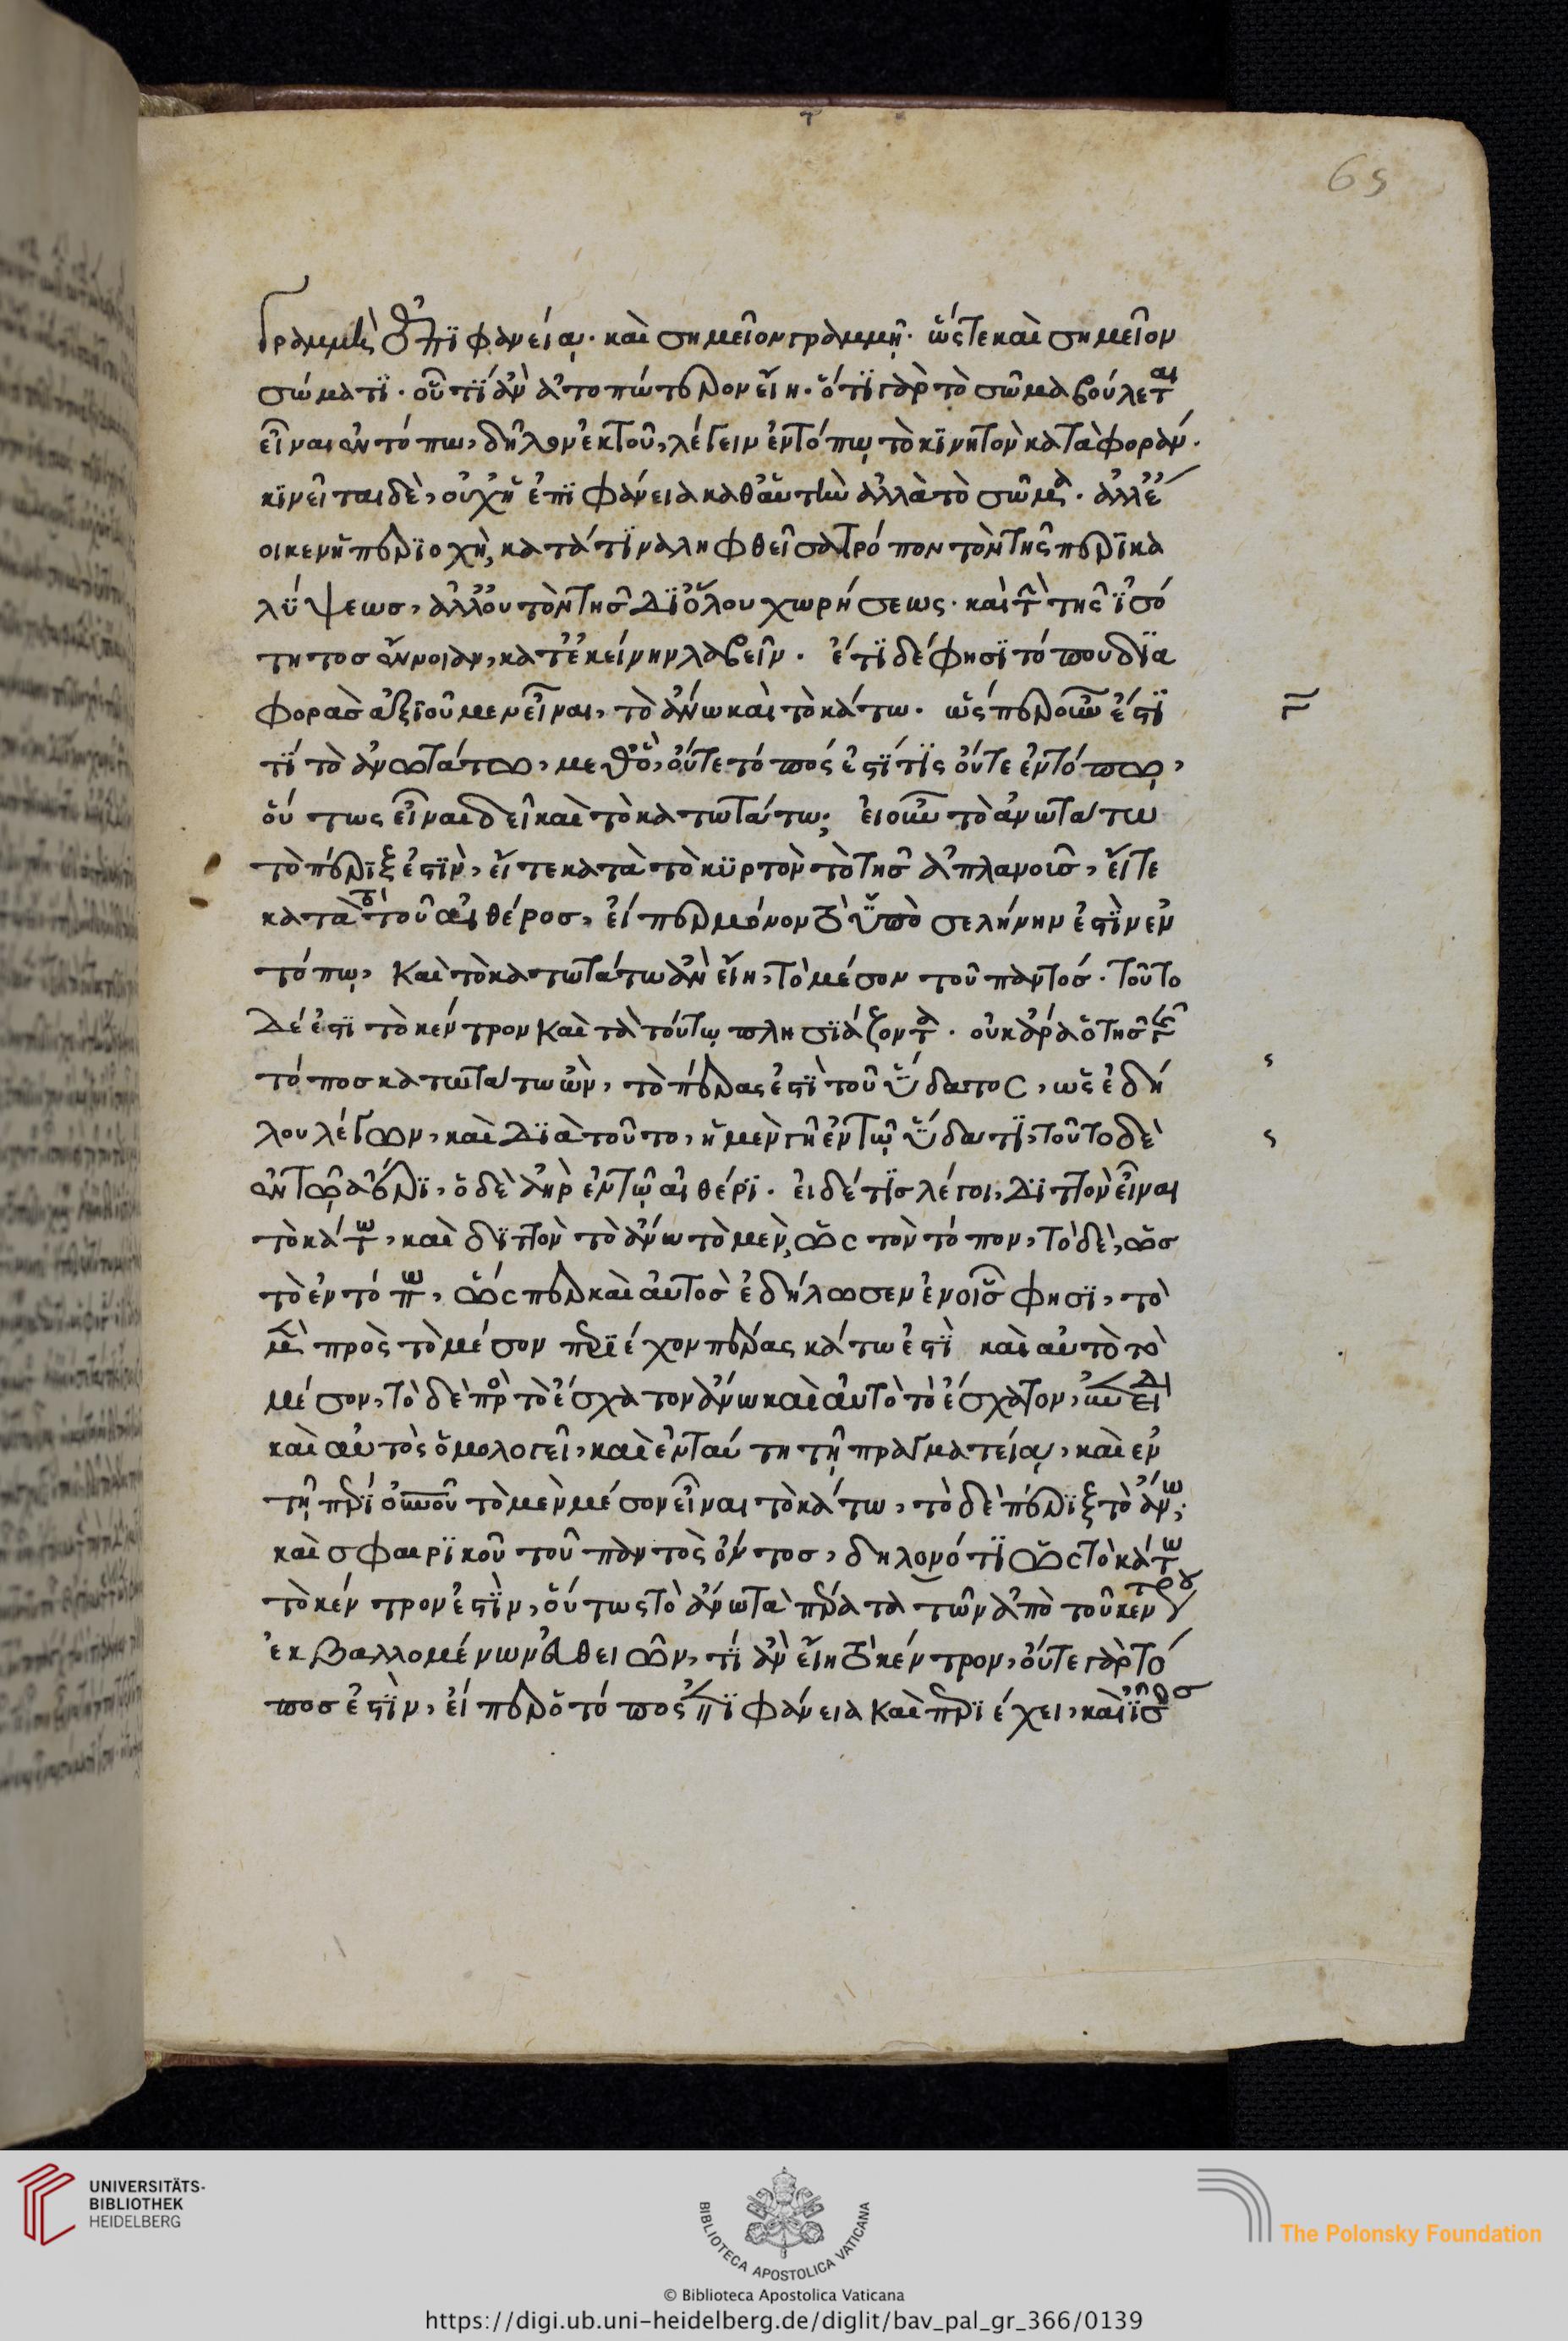 65
Γραμμὴ δ' ἐπιφανείᾳ· καὶ σημεῖον γραμμῇ· ὥστε καὶ σημεῖον
σώματι· οὗ τί ἂν ἀτοπώτερον εἴη· ὅτι γὰρ τὸ σῶμα βούλεται
εἶναι ἐν τόπω, δῆλον ἐκ τοῦ, λέγειν ἐν τόπῳ τὸ κινητὸν κατὰ φοράν·
κινεῖται δὲ, οὐχ ἡ ἐπιφάνεια καθ' αὑτὴν ἀλλὰ τὸ σῶμα· ἀλλ' ἐ
οικεν ἡ περιοχὴ, κατά τινα ληφθεῖσα τρόπον τὸν τῆς περικα
λύψεως, ἀλλ' οὐ τὸν τῆς δι' ὅλου χωρήσεως· καὶ τὴν τῆς ἰσό
τητος ἔννοιαν, κατ' ἐκείνην λαβεῖν· ἔτι δέ φησι τόπου δια
φορὰς ἀξιοῦμεν εἶναι, τὸ ἄνω καὶ τὸ κάτω· ὥσπερ οὖν ἐστί
τί τὸ ἀνωτάτω, μεθ' ὃ, οὔτε τόπός ἐστί τίς οὔτε ἐν τόπῳ,
οὕτως εἶναι δεῖ καὶ τὸ κατωτάτω; εἰ οὖν τὸ ἀνωτάτω
τὸ πέριξ ἐστὶν, εἴτε κατὰ τὸ κυρτὸν τὸ τῆς ἀπλανοῦς, εἴτε
κατὰ τὸ τοῦ αἰθέρος, εἴπερ μόνον τὸ ὑπὸ σελήνην ἐστὶν ἐν
τόπῳ, καὶ τὸ κατωτάτω ἂν εἴη, τὸ μέσον τοῦ παντός· τοῦτο
δέ ἐστι τὸ κέντρον καὶ τὰ τούτῳ πλησιάζοντα· οὐκ ἄρα ὁ τῆς γῆς
τόπος κατωτάτω ὢν, τὸ πέρας ἐστὶ τοῦ ὕδατος, ὡς ἐδή
λου λέγων, καὶ διὰ τοῦτο, ἡ μὲν γῆ ἐν τῷ ὕδατι, τοῦτο δὲ
ἐν τῷ ἀέρι, ὁ δὲ ἀὴρ ἐν τῷ αἰθέρι· εἰ δέ τις λέγοι, διττὸν εἶναι
τὸ κάτω, καὶ διττὸν τὸ ἄνω τὸ μὲν, ὡς τὸν τόπον, τὸ δὲ, ὡς
τὸ ἐν τόπω, ὥσπερ καὶ αὐτὸς ἐδήλωσεν ἐν οἷς φησι, τὸ
μὲν πρὸς τὸ μέσον περιέχον πέρας κάτω ἐστὶ καὶ αὐτὸ τὸ
μέσον, τὸ δὲ πρὸς τὸ ἔσχατον ἄνω καὶ αὐτὸ τὸ ἔσχατον,
καὶ αὐτὸς ὁμολογεῖ, καὶ ἐν ταύτῃ τῇ πραγματείᾳ, καὶ ἐν
τῇ περὶ οὐρανοῦ τὸ μὲν μέσον εἶναι τὸ κάτω, τὸ δὲ πέριξ τὸ ἄνω·
καὶ σφαιρικοῦ τοῦ παντὸς ὄντος, δηλονότι ὡς τὸ κάτω
τὸ κέντρον ἐστὶν, οὕτως τὸ ἄνω τὰ πέρατα τῶν ἀπὸ τοῦ κέντρου
ἐκβαλλομένων εὐθειῶν, τί ἂν εἴη τὸ κέντρον, οὔτε γὰρ τό
πος ἐστὶν, εἴπερ ὁ τόπος ἐπιφάνεια καὶ περιέχει, καὶ ἴσος
UNIVERSITÄTS-
BIBLIOTHEK
HEIDELBERG
BIBLIOTECA APOSTOLICA VATICANA
The Polonsky Foundation
© Biblioteca Apostolica Vaticana
https://digi.ub.uni-heidelberg.de/diglit/bav_pal_gr_366/0139